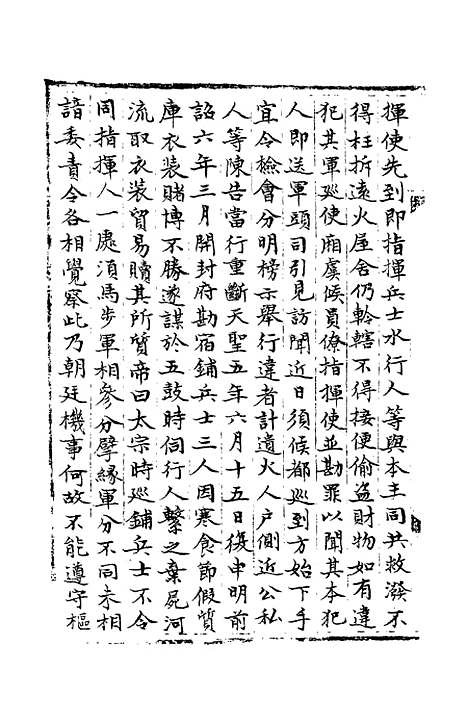 揮使先到即指揮兵士水行人等與本主同共救潑不
得枉拆遠火屋舍仍軨轄不得接便偷盗財物如有違
犯其軍巡使廂虞候員僚指揮使並勘罪以聞其本犯
人即送軍頭司引見訪聞近日須候都巡到方始下手
宜令檢會分明榜示舉行違者計遺火人户側近公私
人等陳告當行重斷天聖五年六月十五日復申明前
詔六年三月開封府勘宿鋪兵士三人因寒食節假質
庫衣装賭博不勝遂謀於五鼓時伺行人繫之棄屍河
流取衣装貿易贖其所質帝曰太宗時巡鋪兵士不令
同指揮人一處須馬步軍相參分擘緣軍分不同未相
諳委責令各相覺察此乃朝廷機事何故不能遵守樞